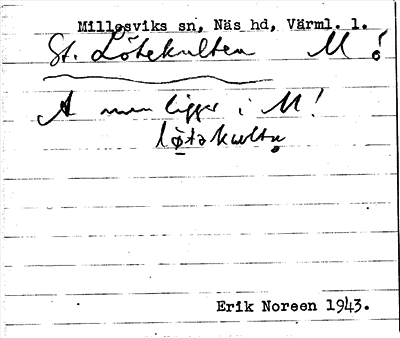 Millesviks sn, Näs hd, Värml. l.
St. Lötekulten M!
A men ligger i M!
lötakulta
Erik Noreen 1943.